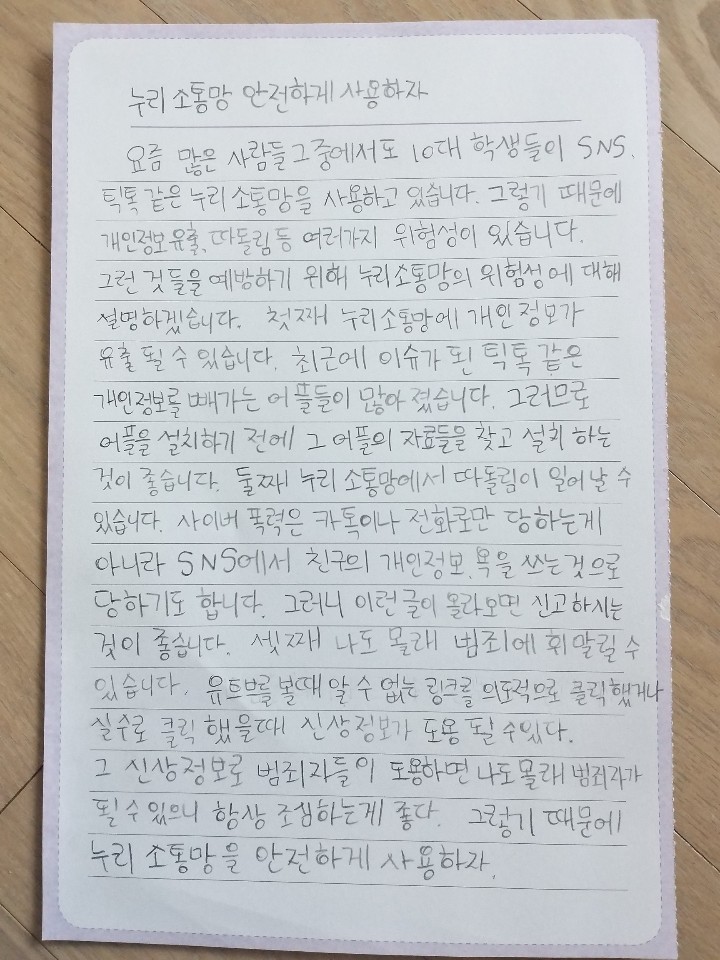 누리 소통망 안전하게 사용하자
요즘 많은 사람들 그 중에서도 10대 학생들이 SNS.
틱톡 같은 누리 소통망을 사용하고 있습니다. 그렇기 때문에
개인정보 유출, 따돌림 등 여러가지 위험성이 있습니다.
그런 것들을 예방하기 위해 누리소통망의 위험성에 대해
설명하겠습니다. 첫째 누리소통망에 개인 정보가
유출 될 수 있습니다. 최근에 이슈가 된 틱톡 같은
개인정보를 빼가는 어플들이 많아 졌습니다. 그러므로
어플을 설치하기 전에 그 어플의 자료들을 찾고 설치 하는
것이 좋습니다. 둘째 누리 소통망에서 따돌림이 일어날 수
있습니다. 사이버 폭력은 카톡이나 전화로만 당하는게
아니라 SNS에서 친구의 개인정보, 욕을 쓰는것으로
당하기도 합니다. 그러니 이런 글이 올라오면 신고하시는
것이 좋습니다. 셋째 나도 몰래 범죄에 휘말릴 수
있습니다. 유트브를 볼때 알 수 없는 링크를 의도적으로 클릭했거나
실수로 클릭 했을때 신상정보가 도용 될 수있다.
그 신상정보로 범죄자들이 도용하면 나도몰래 범죄자가
될 수 있으니 항상 조심하는게 좋다. 그렇기 때문에
누리 소통망을 안전하게 사용하자.